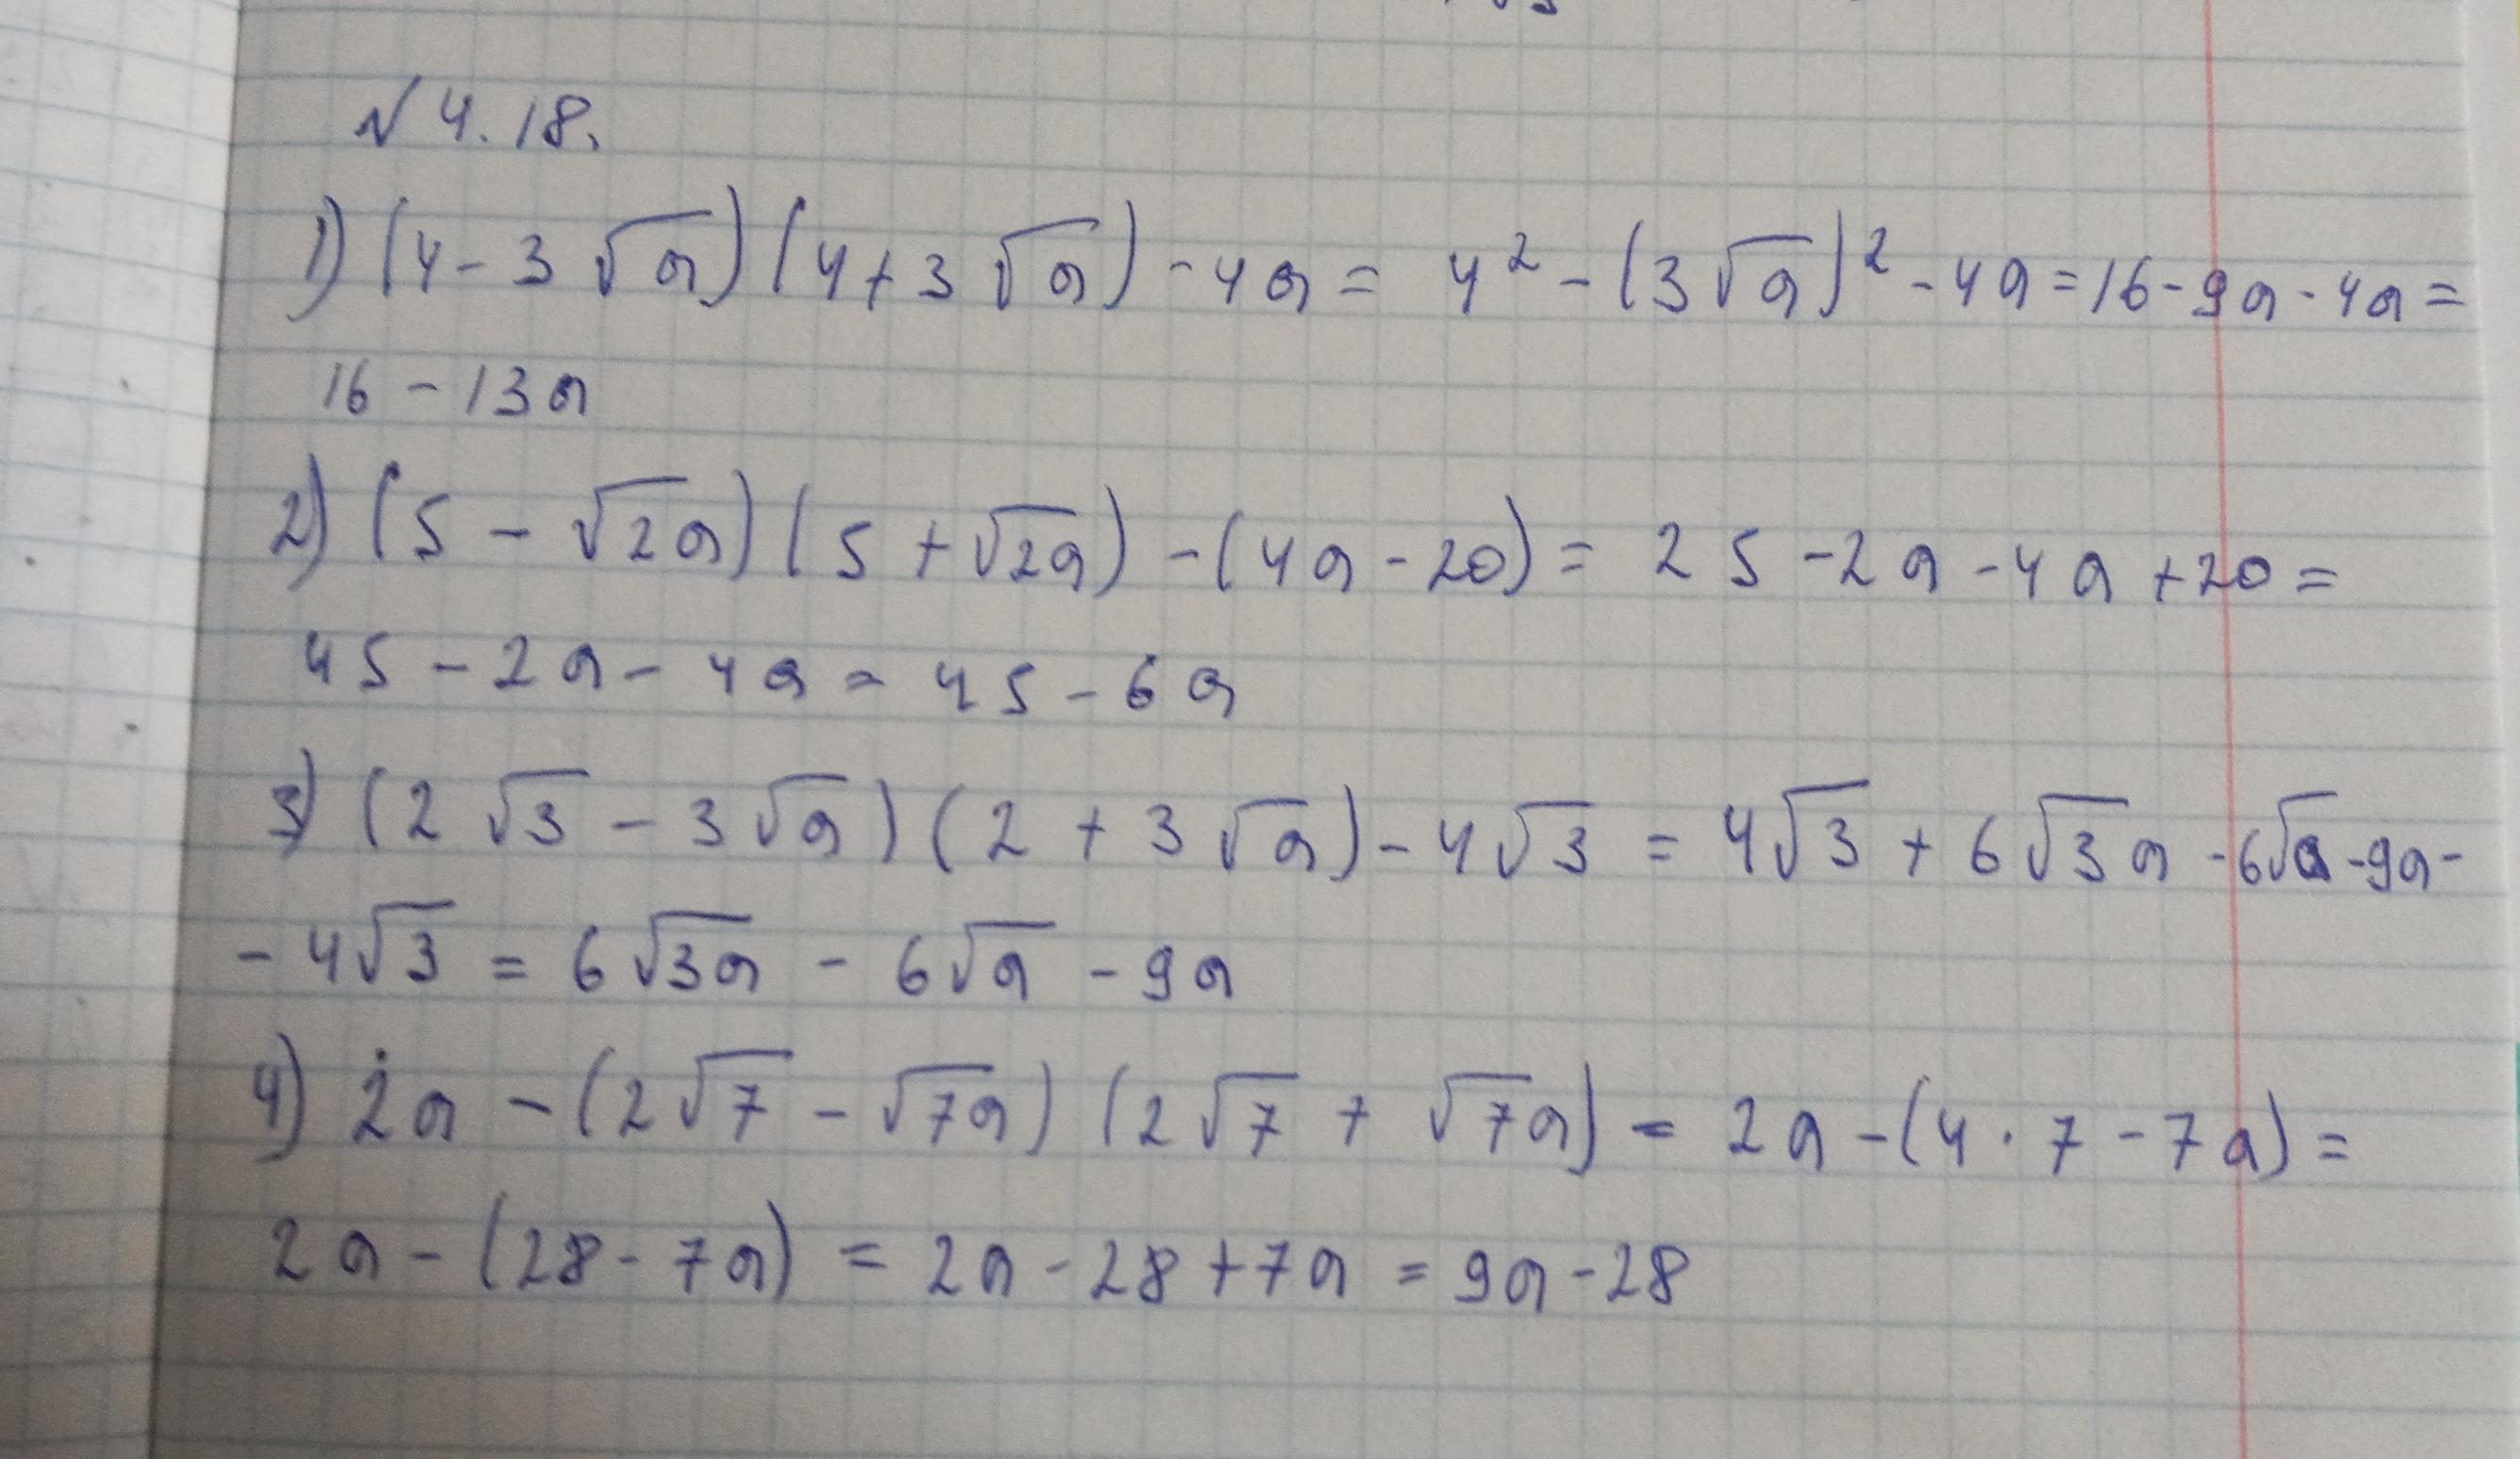 № 4.18.
1) (4 - 3√a)(4 + 3√a) - 4a = 4² - (3√a)² - 4a = 16 - 9a - 4a =
16 - 13a
2) (5 - √2a)(5 + √2a) - (4a - 20) = 25 - 2a - 4a + 20 =
45 - 2a - 4a = 45 - 6a
3) (2√3 - 3√a)(2 + 3√a) - 4√3 = 4√3 + 6√3a - 6√a - 9a -
- 4√3 = 6√3a - 6√a - 9a
4) 2a - (2√7 - √7a)(2√7 + √7a) = 2a - (4 · 7 - 7a) =
2a - (28 - 7a) = 2a - 28 + 7a = 9a - 28